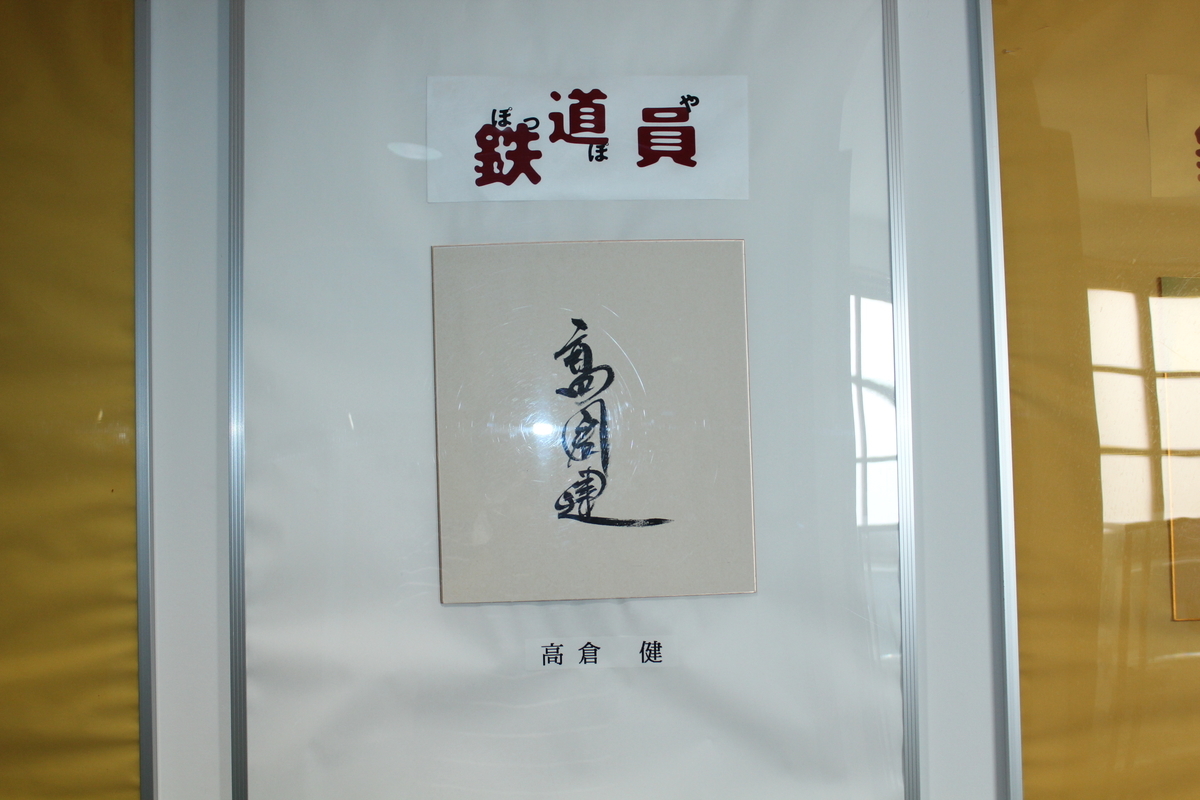 鉄道員
ぽっぽや
高倉健
高倉 健